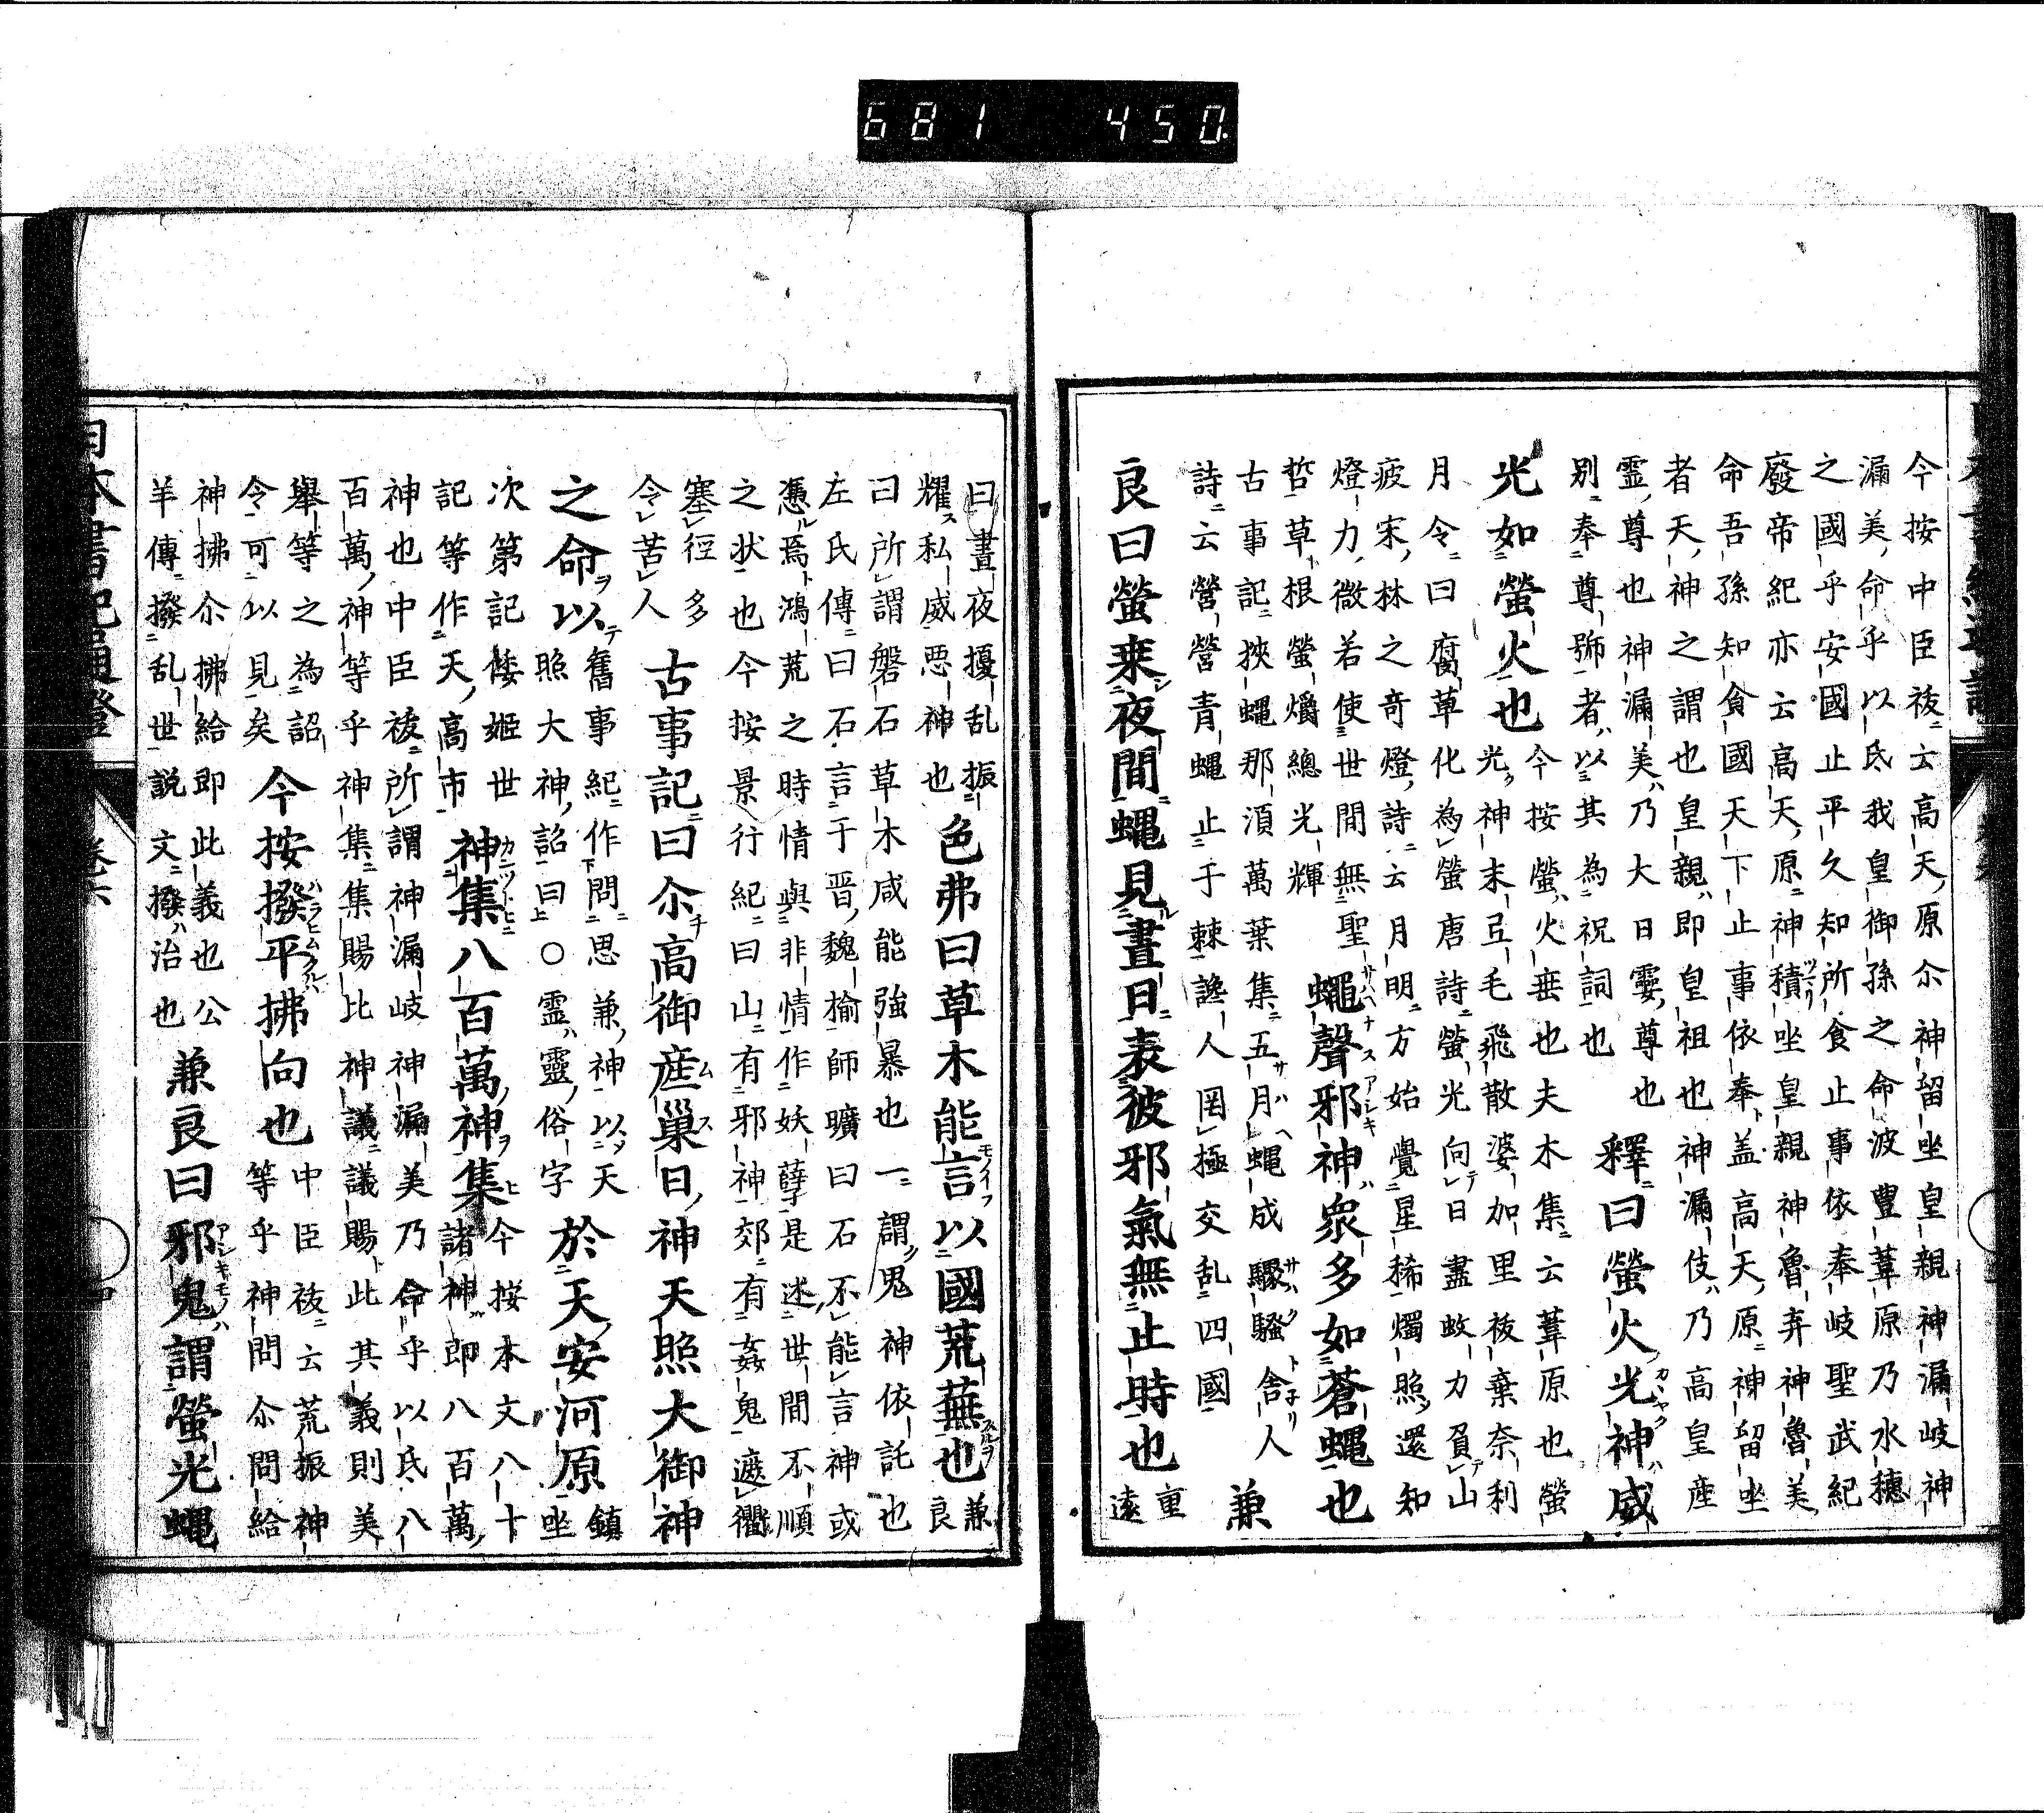 681 450
今按中臣祓云高天原尒神留坐皇親神漏岐神
漏美命乎以氐我皇御孫之命波豊葦原乃水穗
之國乎安國止平久知所食止事依奉岐聖武紀
廢帝紀亦云高天原神積坐皇親神魯弃神魯美
命吾孫知食國天下止事依奉盖高天原神留坐
者天神之謂也皇親即皇祖也神漏伎乃高皇産
霊尊也神漏美乃大日孁尊也
別奉尊号者以其為祝詞也
釋曰螢火光神威
光如螢火也
今按螢火垂也夫木集云葦原也螢
光神末弖毛飛散婆加里祓棄奈利
月令曰腐草化為螢唐詩螢光向日盡蚊力負山
疲宋林之奇燈詩云月明方始覺星稀燭照還知
燈力微若使世間無聖
哲草根螢爝總光輝
蠅聲邪神衆多如蒼蠅也
古事記挾蠅那湏萬葉集五月蠅成驟騒舎人
詩云營營青蠅止于棘讒人罔極交乱四國
兼
良曰螢来夜間蠅見晝日表彼邪氣無止時也
重
遠
曰晝夜擾乱振
耀私威悪神也
色弗曰草木能言以國荒蕪也
兼
良
曰所謂磐石草木咸能強暴也一謂鬼神依託也
左氏傳曰石言于晋魏榆師曠曰石不能言神或
憑焉鴻荒之時情與非情作妖孽是迷世間不順
之状也今按景行紀曰山有邪神郊有姦鬼遮衢
塞徑多
令苦人
古事記曰尒高御産巢日神天照大御神
之命以
舊事紀作問思兼神以天
照大神詔曰○霊靈俗字
於天安河原
鎮
坐
次第記倭姫世
記等作天高市
神集八百萬神集
今按本文八十
諸神即八百萬
神也中臣祓所謂神漏岐神漏美乃命乎以氐八
百萬神等乎神集集賜比神議議賜此其義則美
舉等之為詔
令可以見矣
今按撥平拂向也
中臣祓云荒振神
等乎神問尒問給
神拂尒拂給即此義也公
羊傳撥乱世説文撥治也
兼良曰邪鬼謂螢光蠅
日本書紀通證
卷六